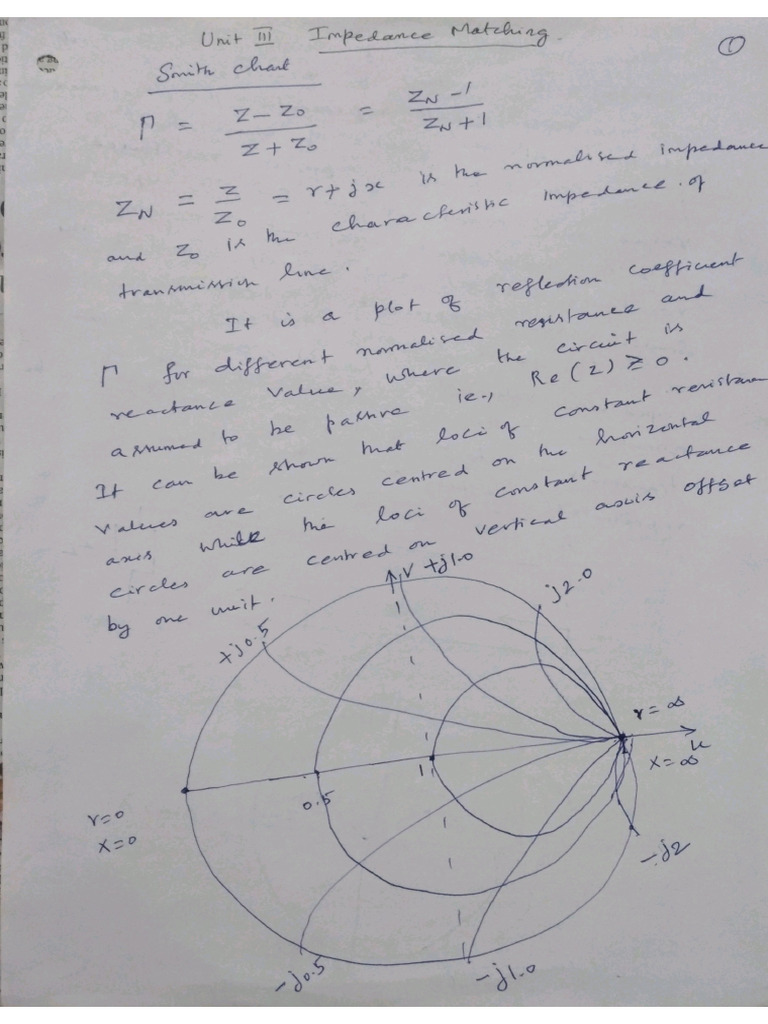 Unit III Impedance Matching.
1
Smith chart
Γ = Z - Z0 / Z + Z0 = ZN - 1 / ZN + 1
ZN = Z / Z0 = r + jx is the normalised impedance
and Z0 is the characteristic impedance of
transmission line.
It is a plot of reflection coefficient
Γ for different normalised resistance and
reactance value, where the circuit is
assumed to be passive ie., Re(Z) ≥ 0.
It can be shown that loci of constant resistance
values are circles centred on the horizontal
axis while the loci of constant reactance
circles are centred on vertical axis offset
by one unit.
V +j1.0
j2.0
+j0.5
r = ∞
u
x = ∞
1
0.5
r=0
x=0
-j2
-j0.5
-j1.0